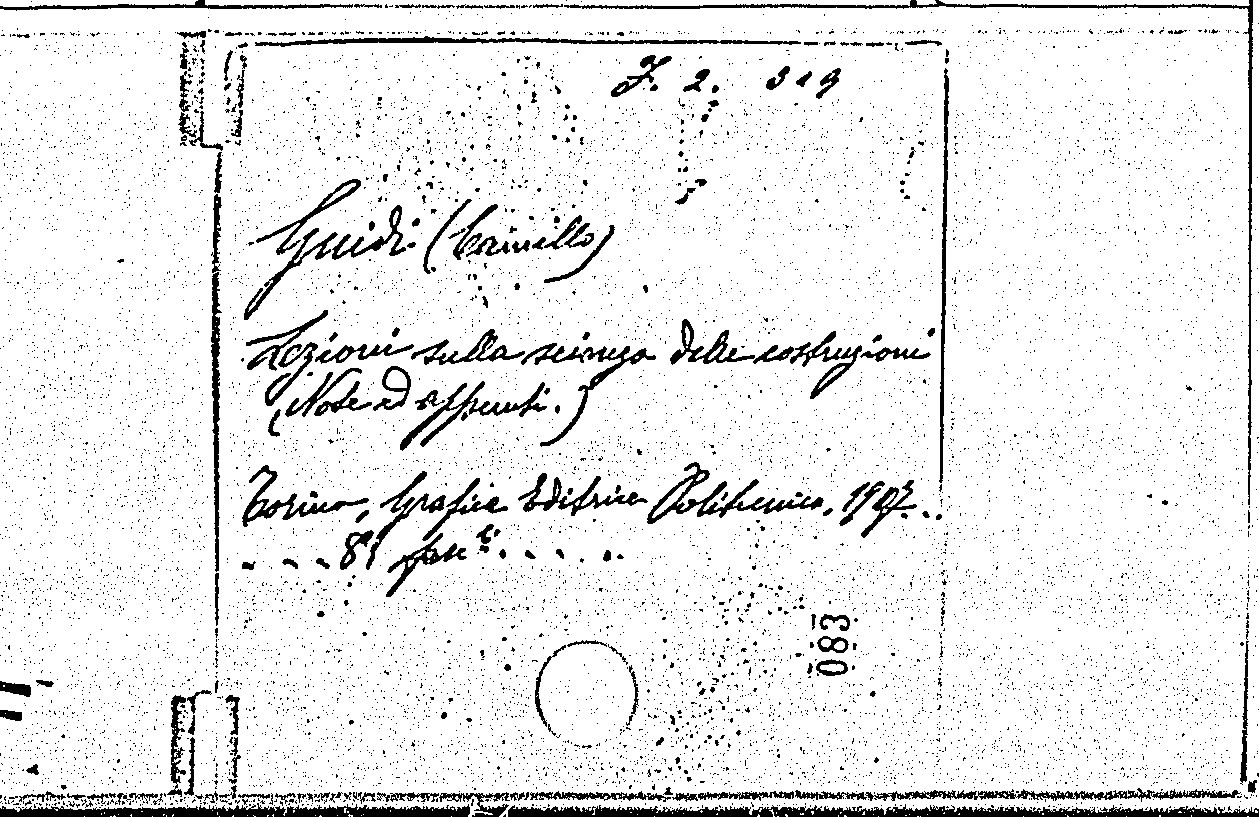 J. 2. 319
Guidi (Camillo)
Lezioni sulla scienza delle costruzioni
(Note ed appunti.)
Torino, Grafica Editrice Politecnica, 1907..
- - - 8°; fasc. - - - -
083